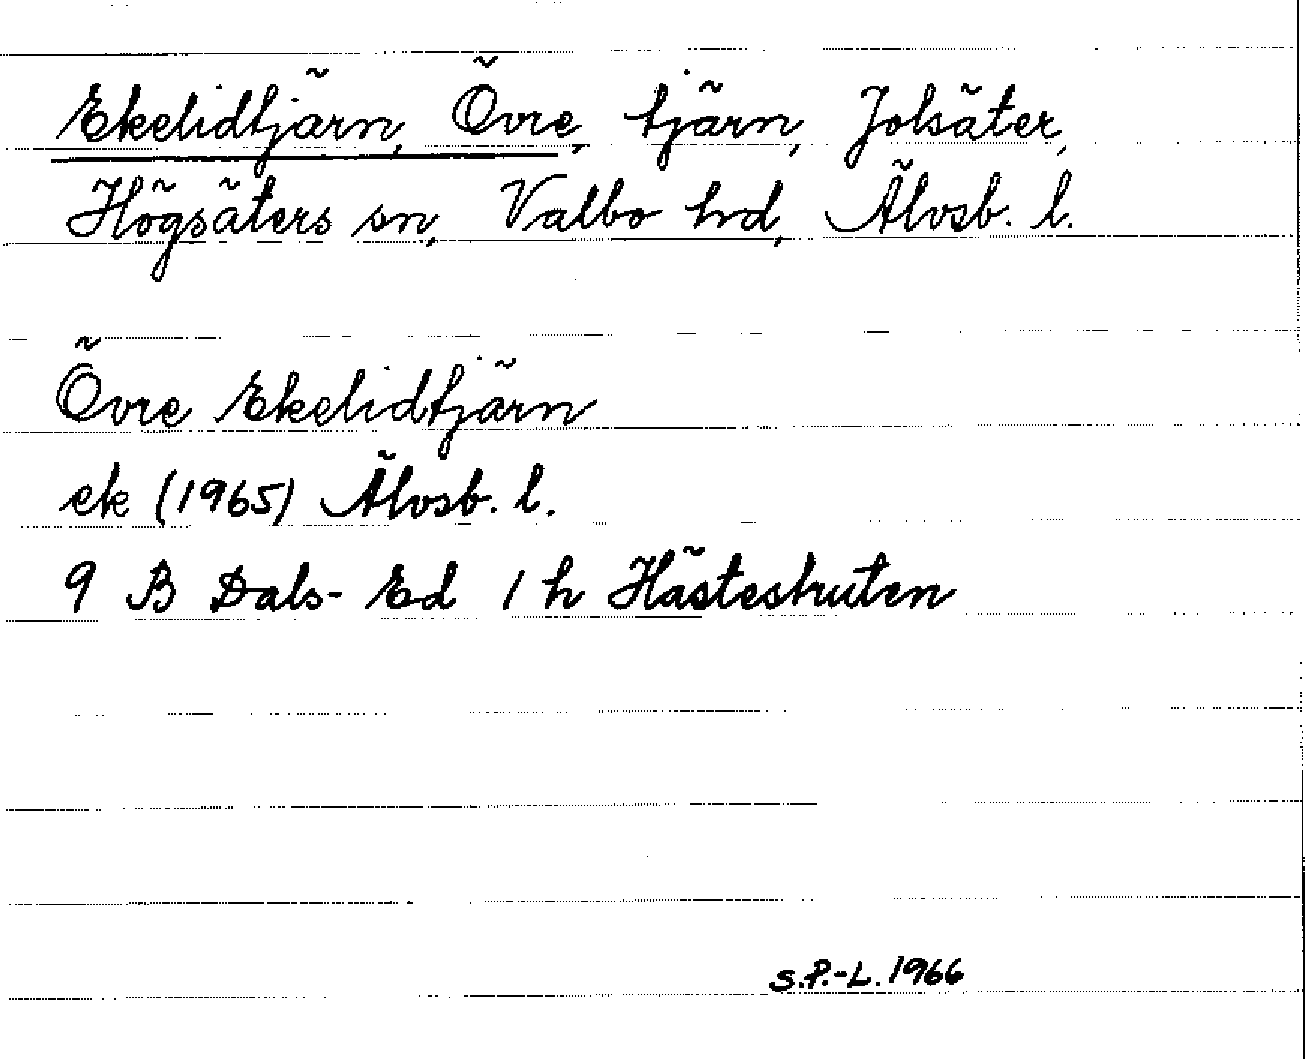 Ekelidtjärn, Övre, tjärn, Jolsäter,
Högsäters sn, Valbo hd, Älvsb. l.
Övre Ekelidtjärn
ek (1965) Älvsb. l.
9 B Dals-Ed 1 h Hästeskruten
S.P.-L. 1966